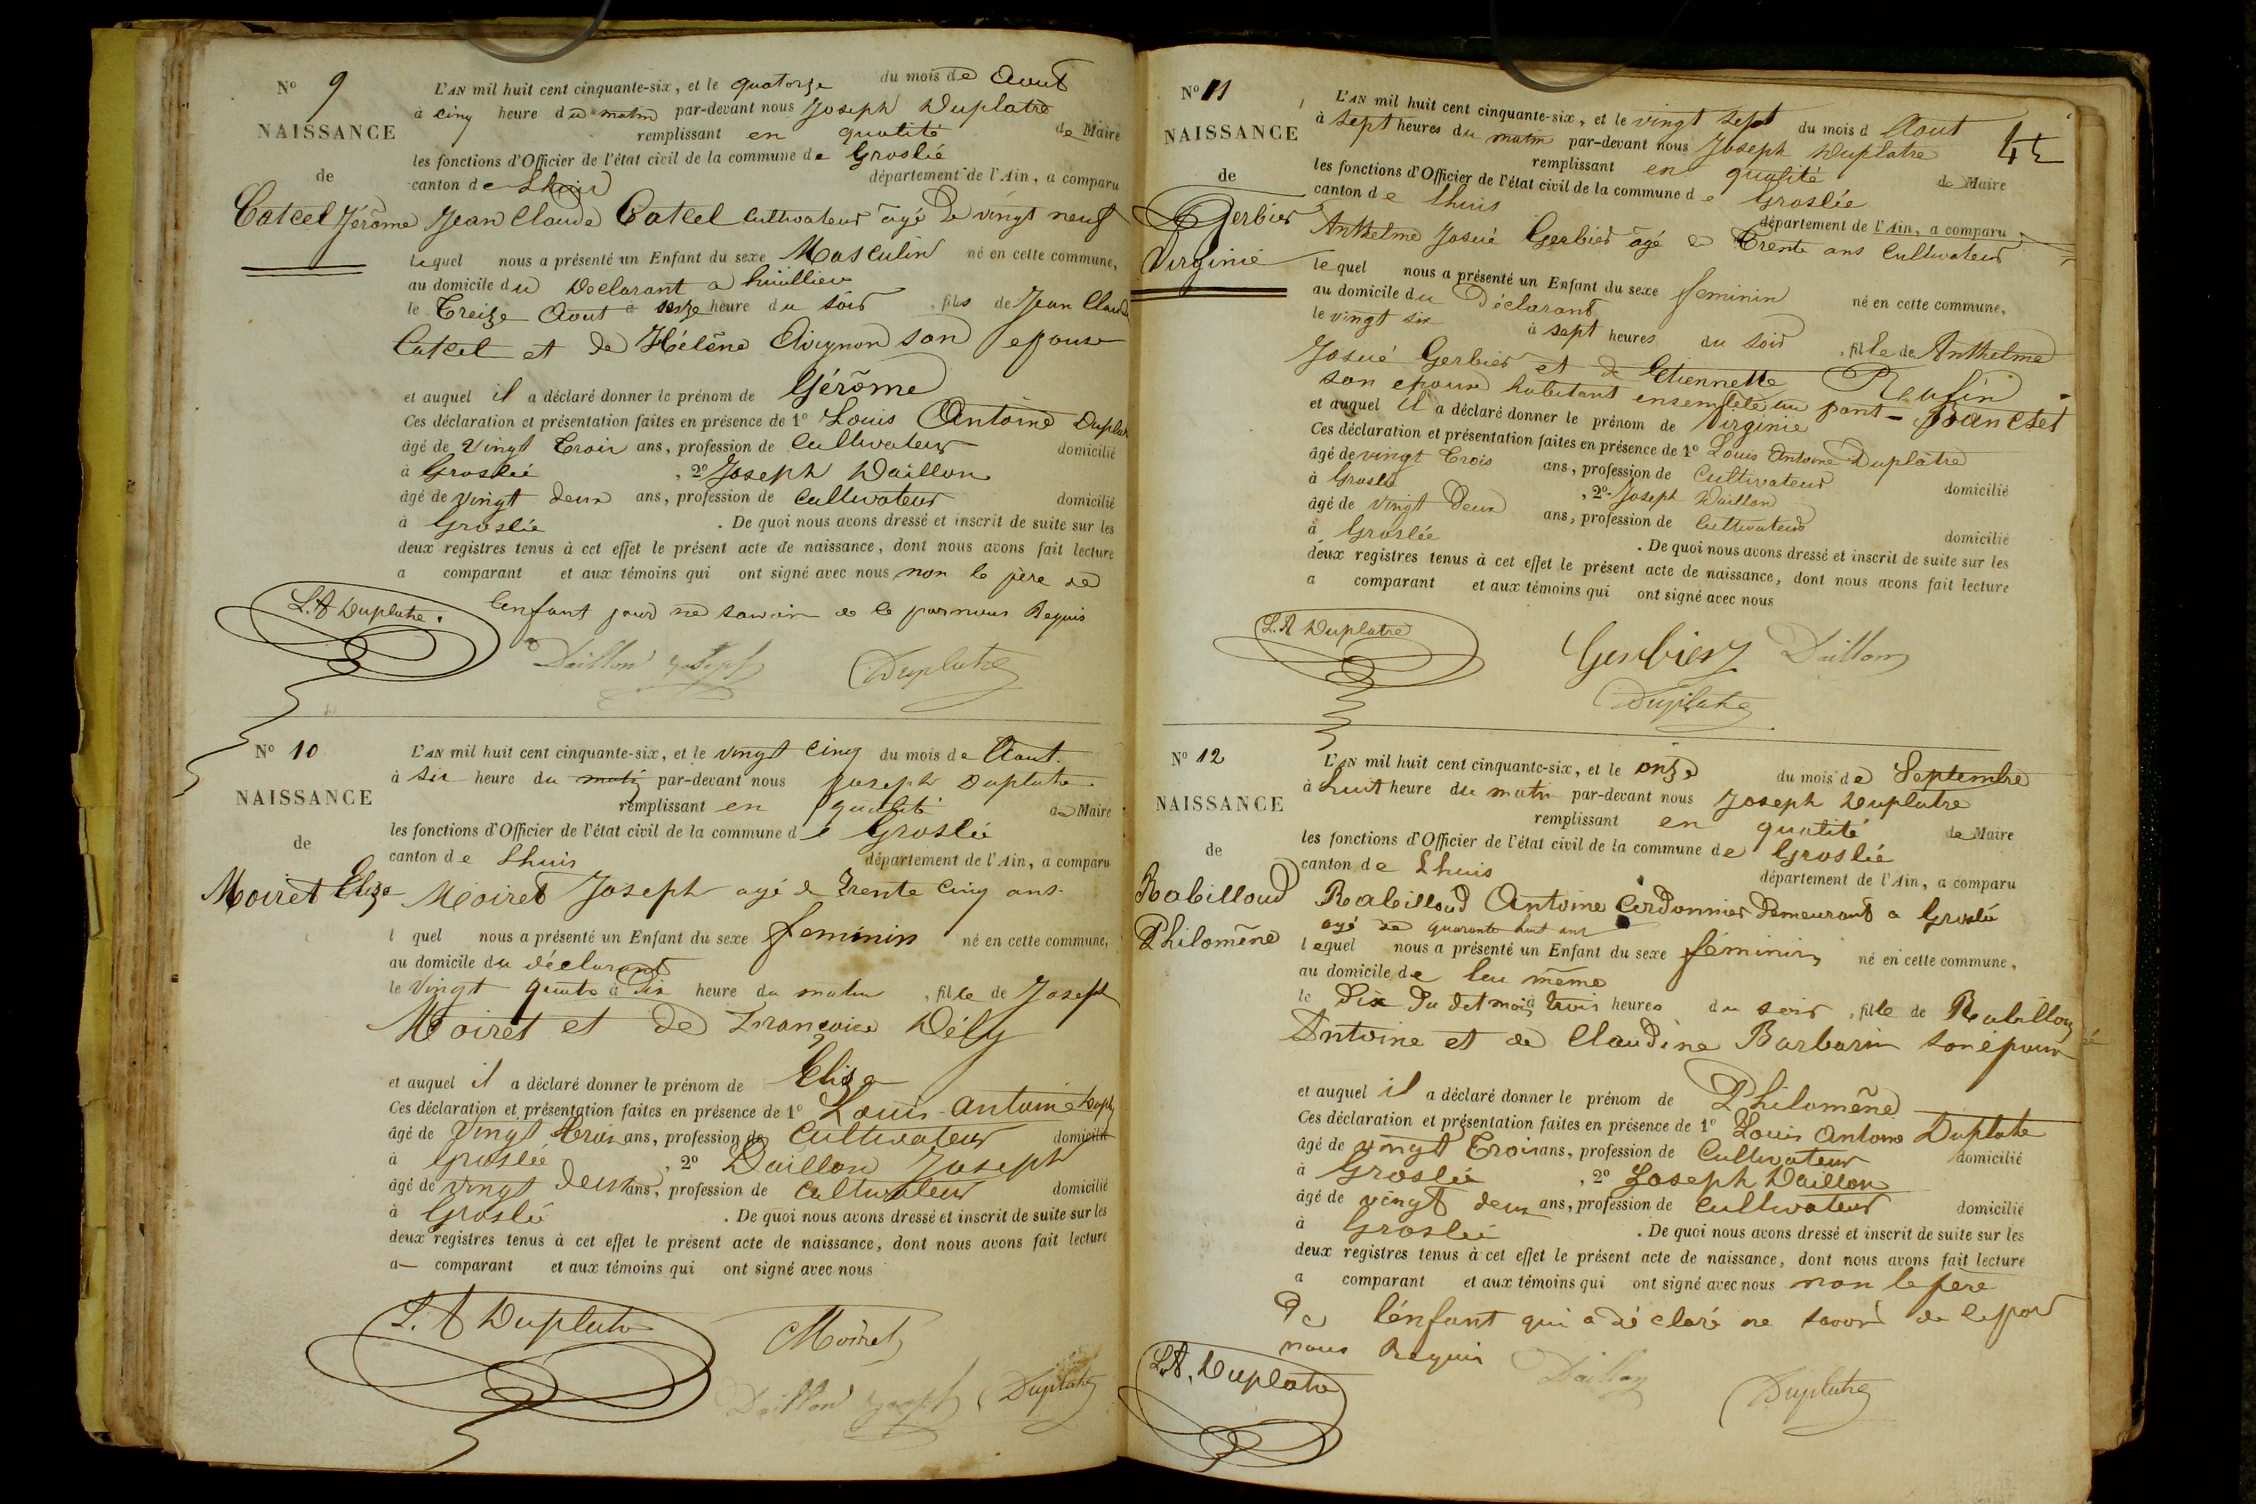 N° 9
NAISSANCE
de
Catcel Jérôme
L'AN mil huit cent cinquante-six, et le quatorze du mois de Aout
à cinq heure du matin par-devant nous Joseph Duplatre
remplissant en qualité de Maire
les fonctions d'Officier de l'état civil de la commune de Groslée
canton de Lhuis département de l'Ain, a comparu
Jean Claude Catcel cultivateur agé de vingt neuf
lequel nous a présenté un Enfant du sexe Masculin né en cette commune,
au domicile du Declarant a
le Treize Aout à heure du soir, fils de Jean Claude
Catcel et de Hélène Avignon son epouse
et auquel il a déclaré donner le prénom de Jérôme
Ces déclaration et présentation faites en présence de 1° Louis Antoine Duplat
âgé de vingt Trois ans, profession de Cultivateur domicilié
à Groslée, 2° Joseph Daillon
âgé de vingt deux ans, profession de cultivateur domicilié
à Groslée. De quoi nous avons dressé et inscrit de suite sur les
deux registres tenus à cet effet le présent acte de naissance, dont nous avons fait lecture
a comparant et aux témoins qui ont signé avec nous non le père de
L.A Duplatre. lenfant pour ne savoir de ce par nous Requis
Daillon joseph Duplatre
N° 10
NAISSANCE
de
Moiret Eliza
L'AN mil huit cent cinquante-six, et le vingt cinq du mois de Aout.
à six heure du matin par-devant nous Joseph Duplatre
remplissant en qualité de Maire
les fonctions d'Officier de l'état civil de la commune de Groslée
canton de Lhuis département de l'Ain, a comparu
Moiret Joseph agé de Trente cinq ans
l quel nous a présenté un Enfant du sexe feminin né en cette commune,
au domicile du déclarant
le vingt quatre à Dix heure du matin, fille de Joseph
Moiret et de Françoise Dély
et auquel il a déclaré donner le prénom de Eliza
Ces déclaration et présentation faites en présence de 1° Louis-antoine Dupl
âgé de vingt trois ans, profession de Cultivateur domicilié
à Groslée, 2° Daillon Joseph
âgé de vingt deux ans, profession de cultivateur domicilié
à Groslée. De quoi nous avons dressé et inscrit de suite sur les
deux registres tenus à cet effet le présent acte de naissance, dont nous avons fait lecture
a comparant et aux témoins qui ont signé avec nous
L. A Duplatre Moiret
Daillon joseph Duplatre
N° 11
NAISSANCE
de
Gerbier
Virginie
L'AN mil huit cent cinquante-six, et le vingt sept du mois d Aout
à sept heures du matin par-devant nous Joseph Duplatre
remplissant en qualité de Maire
les fonctions d'Officier de l'état civil de la commune de Groslée
canton de Lhuis département de l'Ain, a comparu
Anthelme Josué Gerbier agé de Trente ans Cultivateur
lequel nous a présenté un Enfant du sexe feminin né en cette commune,
au domicile du Déclarant
le vingt six à sept heures du soir, fille de Anthelme
Josué Gerbier et de Etiennette
son epouse habitant ensemble au pont-Bancet
et auquel il a déclaré donner le prénom de Virginie
Ces déclaration et présentation faites en présence de 1° Louis Antoine Duplâtre
âgé de vingt Trois ans, profession de Cultivateur domicilié
à Groslée, 2° Joseph Daillon
âgé de vingt Deux ans, profession de Cultivateur domicilié
à Groslée. De quoi nous avons dressé et inscrit de suite sur les
deux registres tenus à cet effet le présent acte de naissance, dont nous avons fait lecture
a comparant et aux témoins qui ont signé avec nous
L.A Duplatre Gerbier Daillon
Duplatre
N° 12
NAISSANCE
de
Rabilloud
Philomêne
L'AN mil huit cent cinquante-six, et le onze du mois de Septembre
à huit heure du matin par-devant nous Joseph Duplatre
remplissant en qualité de Maire
les fonctions d'Officier de l'état civil de la commune de Groslée
canton de Lhuis département de l'Ain, a comparu
Rabilloud Antoine Cordonnier Demeurant a Groslée
agé de quarante huit ans
lequel nous a présenté un Enfant du sexe féminin né en cette commune,
au domicile de lui même
le Dix du dit mois à trois heures du soir, fille de Rabilloud
Antoine et de Claudine Barbarin son épouse
et auquel il a déclaré donner le prénom de Philomêne
Ces déclaration et présentation faites en présence de 1° Louis Antoine Duplatre
âgé de vingt Trois ans, profession de Cultivateur domicilié
à Groslée, 2° Joseph Daillon
âgé de vingt deux ans, profession de cultivateur domicilié
à Groslée. De quoi nous avons dressé et inscrit de suite sur les
deux registres tenus à cet effet le présent acte de naissance, dont nous avons fait lecture
a comparant et aux témoins qui ont signé avec nous non le père
De l'énfant qui a déclaré ne savoir de ce par
nous Requis
L.A. Duplatre Daillon Duplatre